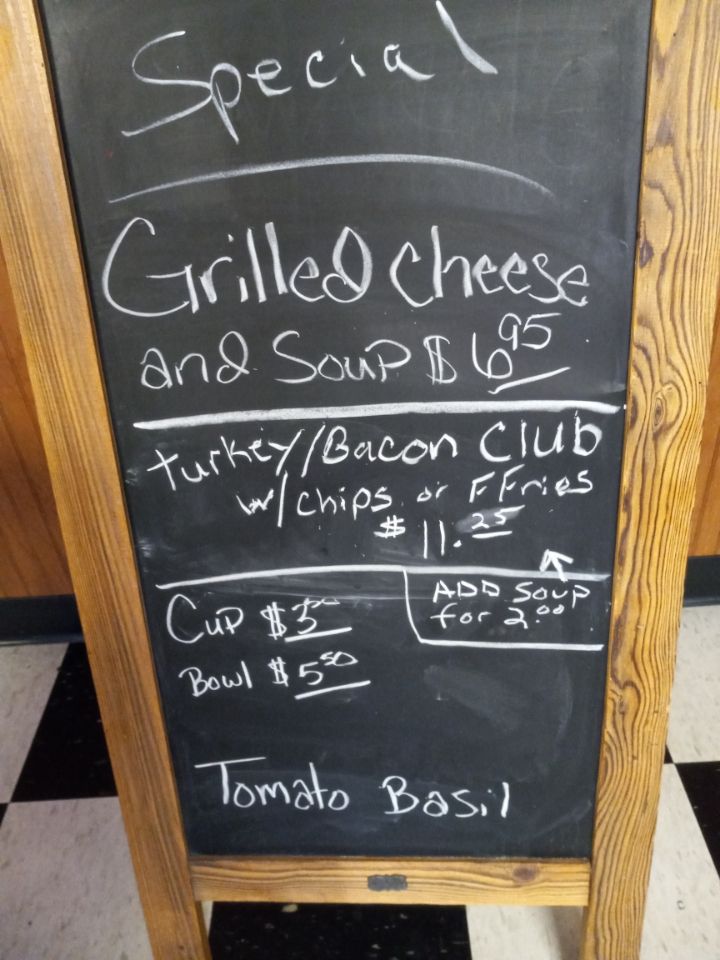 Special
Grilled cheese
and Soup $6.95
turkey/Bacon Club
w/chips or F Fries
$11.25
ADD Soup
for 2.00
Cup $3.00
Bowl $5.50
Tomato Basil